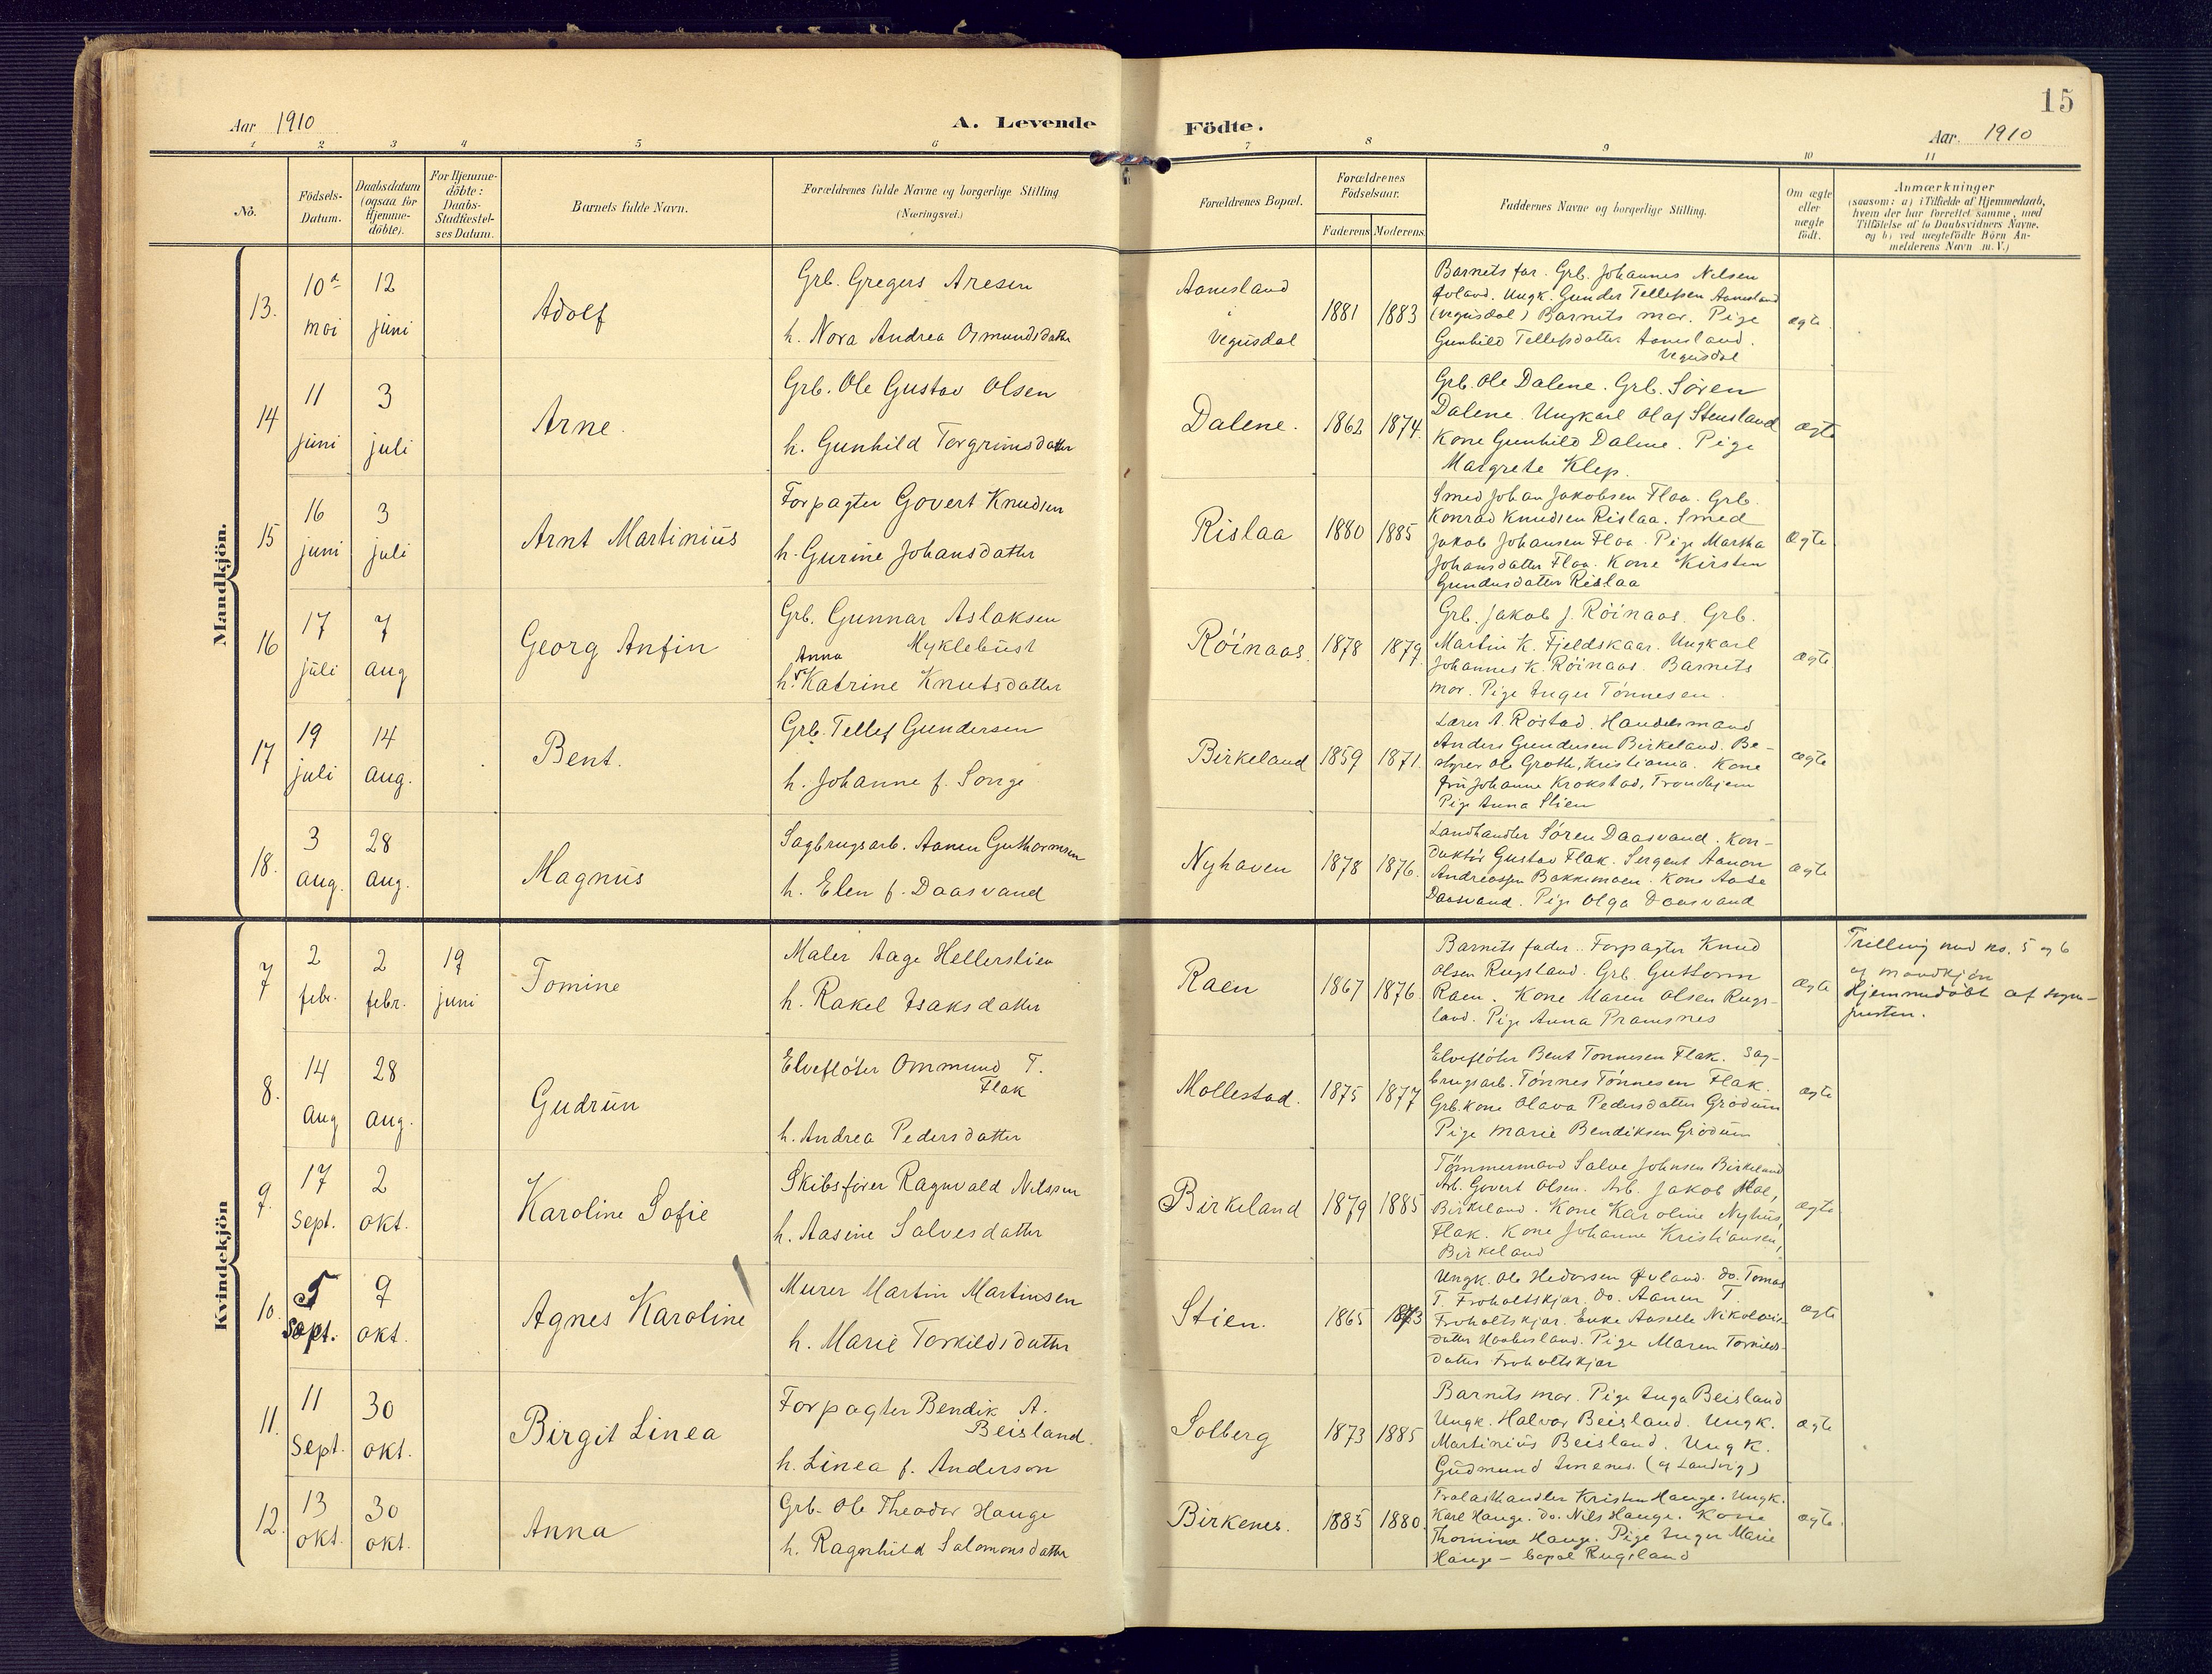 15
Aar 1910
A. Levende
Födte.
Aar. 1910
1 2 3 4 5 6 7 8 9 10 11
No.
Födsels-
Datum.
Daabsdatum
(ogsaa for
Hjemme-
döbte).
For Hjemme-
döbte:
Daabs-
Stadfæstel-
ses Datum.
Barnets fulde Navn.
Forældrenes fulde Navne og borgerlige Stilling
(Næringsvei.)
Forældrenes Bopæl.
Forældrenes
Födselsaar.
Faderens Moderens.
Faddernes Navne og borgerlige Stilling.
Om ægte
eller
uægte
födt.
Anmærkninger
(saasom: a) i Tilfælde af Hjemmedaab,
hvem der har forrettet samme, med
Tilföielse af to Daabsvidners Navne.
og b) ved uægtefödte Börn An-
melderens Navn m. V.)
Mandkjön.
13.
10de
mai
12
juni
Adolf
Grb. Gregers Aresen
h. Nora Andrea Osmundsdatter
Aanesland
i
Vegusdal
1881 1883
Barnets far. Grb. Johannes Nilsen
Øvland. Ungk. Gunder Tellefsen Aanesland
(Vegusdal) Barnets mor. Pige
Gunhild Tellefsdatter Aanesland.
Vegusdal
ægte.
14
11
juni
3
juli
Arne.
Grb. Ole Gustav Olsen
h. Gunhild Torgrimsdatter
Dalene.
1862 1874.
Grb. Ole Dalene. Grb. Sören
Dalene. Ungkarl Olaf Stensland
Kone Gunhild Dalene. Pige
Margrete Klep.
ægte
15
16
juni
3
juli
Arnt Martinius
Forpagter Govert Knudsen
h. Gurine Johansdatter
Rislaa
1880 1885
Smed Johan Jakobsen Flaa. Grb.
Konrad Knudsen Rislaa. Smed
Jakob Johansen Flaa. Pige Martha
Johansdatter Flaa. Kone Kirsten
Gundersdatter Rislaa
ægte.
16
17
juli
7
aug
Georg Anfin
Grb. Gunnar Aslaksen
Myklebust
Anna
h. Katrine Knutsdatter
Röinaas.
1878 1879.
Grb. Jakob J. Röinaas. Grb.
Martin K. Fjeldskaar. Ungkarl
Johannes K. Röinaas. Barnets
mor. Pige Inger Tönnesen.
ægte.
17
19
juli
14
aug.
Bent.
Grb. Tellef Gundersen
h. Johanne f. Songe
Birkeland
1859 1871.
Lærer A. Röstad. Handelsmand
Anders Gundersen Birkeland. Be-
styrer Ole Groth, Kristiania. Kone
fru Johanne Krokstad, Trondhjem
Pige Anna Stien
ægte
18.
3
aug.
28
aug.
Magnus
Sagbrugsarb. Aanen Guthormsen
h. Elen f. Daasvand
Nyhaven
1878 1876.
Landhandler Sören Daasvand. Kon-
duktör Gustav Flak. Sergent Aanon
Andreassen Bakkemoen. Kone Aase
Daasvand. Pige Olga Daasvand
ægte
Kvindekjön
7
2
febr.
2
febr.
19
juni
Tomine
Maler Aage Hellerslien
h. Rakel Isaksdatter
Raen
1867 1876.
Barnets fader. Forpagter Knud
Olsen Rugsland. Grb. Guttorm
Raen. Kone Maren Olsen Rugs-
land. Pige Anna Pramsnes
ægte
Trilling med no. 5 og 6
af mandkjön
Hjemmedöbt af sogne-
presten.
8.
14
aug
28
aug.
Gudrun
Elveflöter Ommund T.
Flak
h. Andrea Pedersdatter
Mollestad.
1875 1877
Elveflöter Bent Tönnesen Flak. Sag-
brugsarb. Tönnes Tönnesen Flak.
Grb.kone Olava Pedersdatter Grödum
Pige Marie Bendiksen Grödum
ægte
9.
17
Sept.
2
okt.
Karoline Sofie
Skibsförer Ragnvald Nilssen
h. Aasine Salvesdatter
Birkeland
1879 1885
Tömmermand Salve Johnsen Birkeland
Arb. Govert Olsen. Arb. Jakob
Birkeland. Kone Karoline Nyhus,
Flak. Kone Johanne Kristiansen,
Birkeland
ægte
10.
5
Sept.
9
okt.
Agnes Karoline
Murer Martin Martinsen
h. Marie Torkildsdatter
Stien.
1865 1873
Ungk. Ole Hedorsen Øvland. do. Tomas
T. Froholtskjær. do. Aanen T.
Froholtskjær. Enke Aaselle Nikolais-
datter Haabesland. Pige Maren Torkilds-
datter Froholtskjær
ægte
11.
11
Sept.
30
okt.
Birgit Linea
Forpagter Bendik A.
Beisland.
h. Linea f. Anderson
Solberg
1873 1885
Barnets mor. Pige Inga Beisland
Ungk. Halvor Beisland. Ungk.
Martinius Beisland. Ungk.
Gudmund (af Landvig)
ægte
12.
13
okt.
30
okt.
Anna
Grb. Ole Theodor Hauge
h. Ragnhild Salomonsdatter
Birkenes.
1885 1880.
Trælasthandler Kristen Hauge. Ungk.
Karl Hauge. do. Nils Hauge. Kone
Thomine Hauge. Pige Inger Marie
Hauge – bopæl Rugsland
ægte.